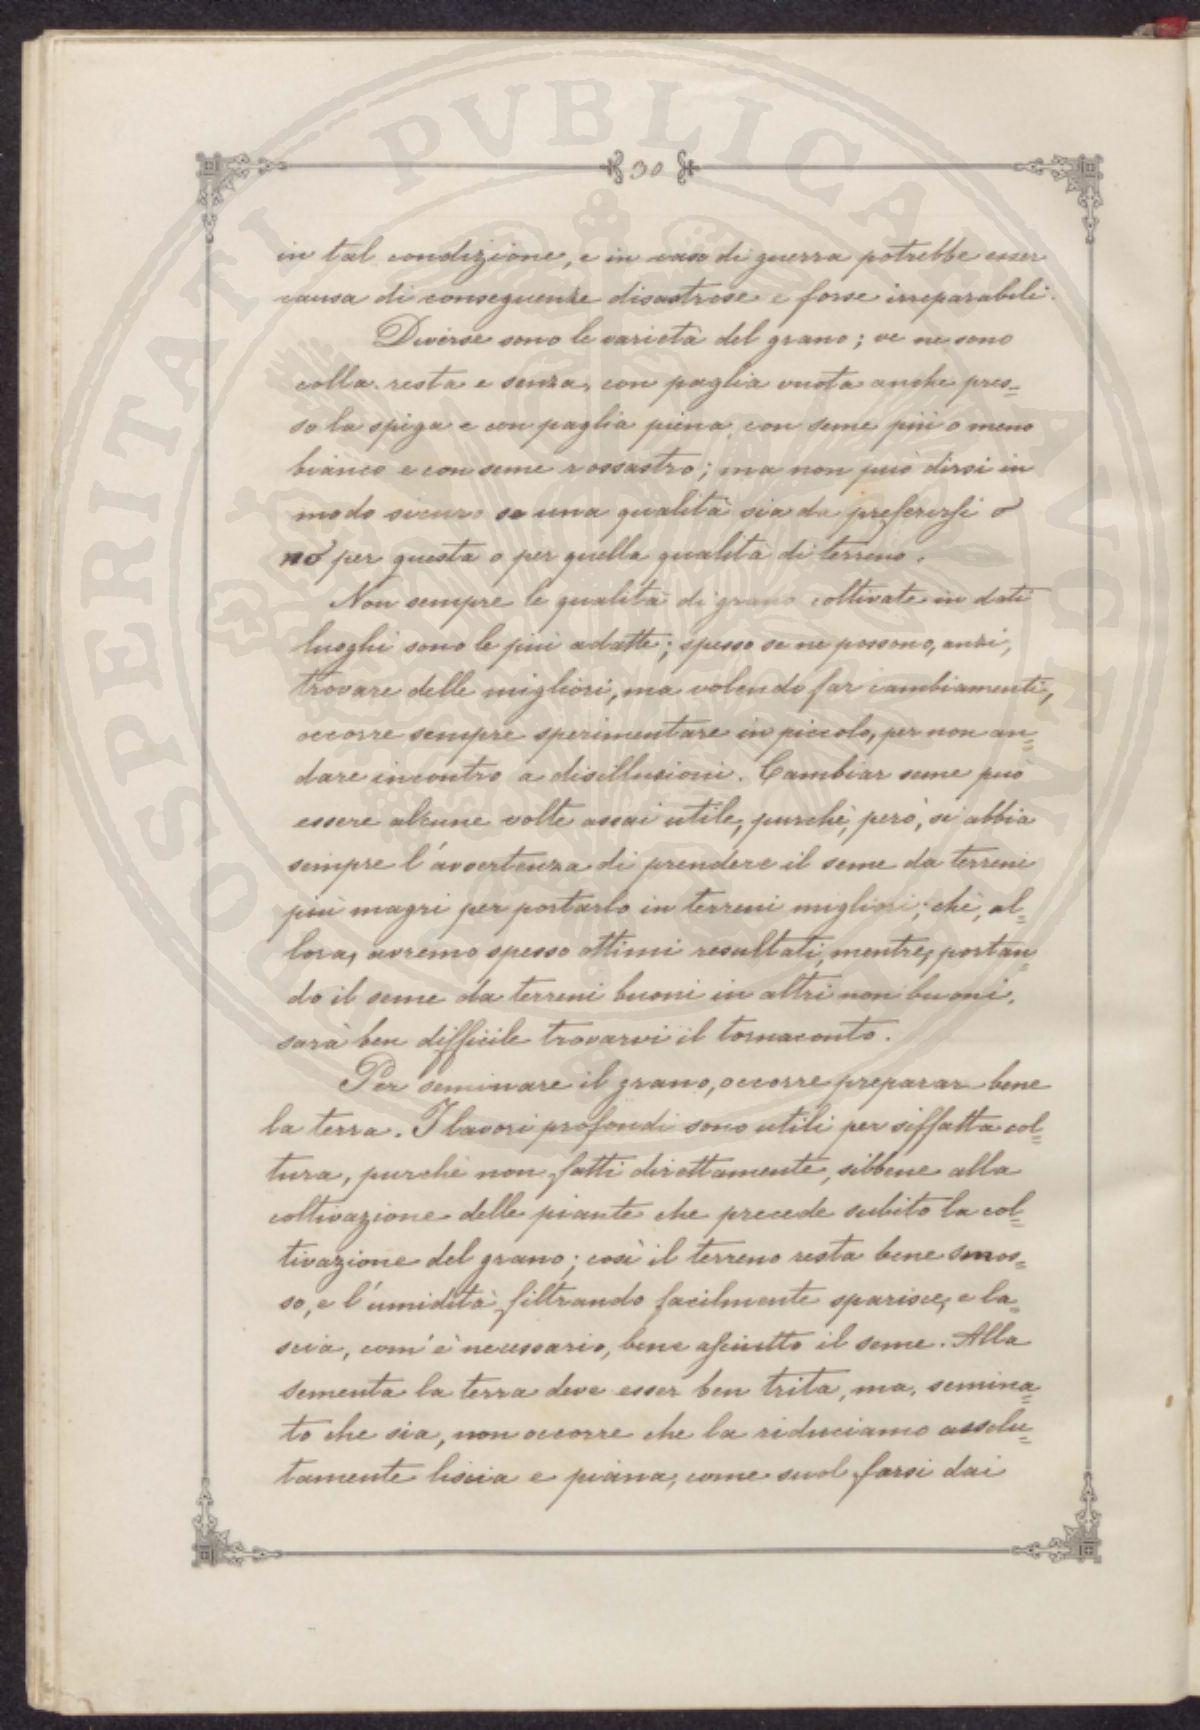 30
in tal condizione, e in caso di guerra potrebbe esser
causa di conseguenze disastrose e forse irreparabili.
Diverse sono le varietà del grano; ve ne sono
colla resta e senza, con paglia vuota anche pres=
so la spiga e con paglia piena, con seme più o meno
bianco e con seme rossastro; ma non può dirsi in
modo sicuro se una qualità sia da preferirsi o
no per questa o per quella qualità di terreno.
Non sempre le qualità di grano coltivate in dati
luoghi sono le più adatte; spesso se ne possono, anzi,
trovare delle migliori, ma volendo far cambiamenti,
occorre sempre sperimentare in piccolo, per non an=
dare incontro a disillusioni. Cambiar seme può
essere alcune volte assai utile, purchè, però, si abbia
sempre l'avvertenza di prendere il seme da terreni
più magri per portarlo in terreni migliori; chè, al=
lora, avremo spesso ottimi resultati, mentre, portan=
do il seme da terreni buoni in altri non buoni,
sarà ben difficile trovarvi il tornaconto.
Per seminare il grano, occorre preparar bene
la terra. I lavori profondi sono utili per siffatta col=
tura, purchè non fatti direttamente, sibbene alla
coltivazione delle piante che precede subito la col=
tivazione del grano; così il terreno resta bene smos=
so, e l'umidità, filtrando facilmente sparisce, e la=
scia, com'è necessario, bene asciutto il seme. Alla
sementa la terra deve esser ben trita, ma, semina=
to che sia, non occorre che la riduciamo assolu=
tamente liscia e piana, come suol farsi dai
PROSPERITATI PVBLICAE AVGENDAE